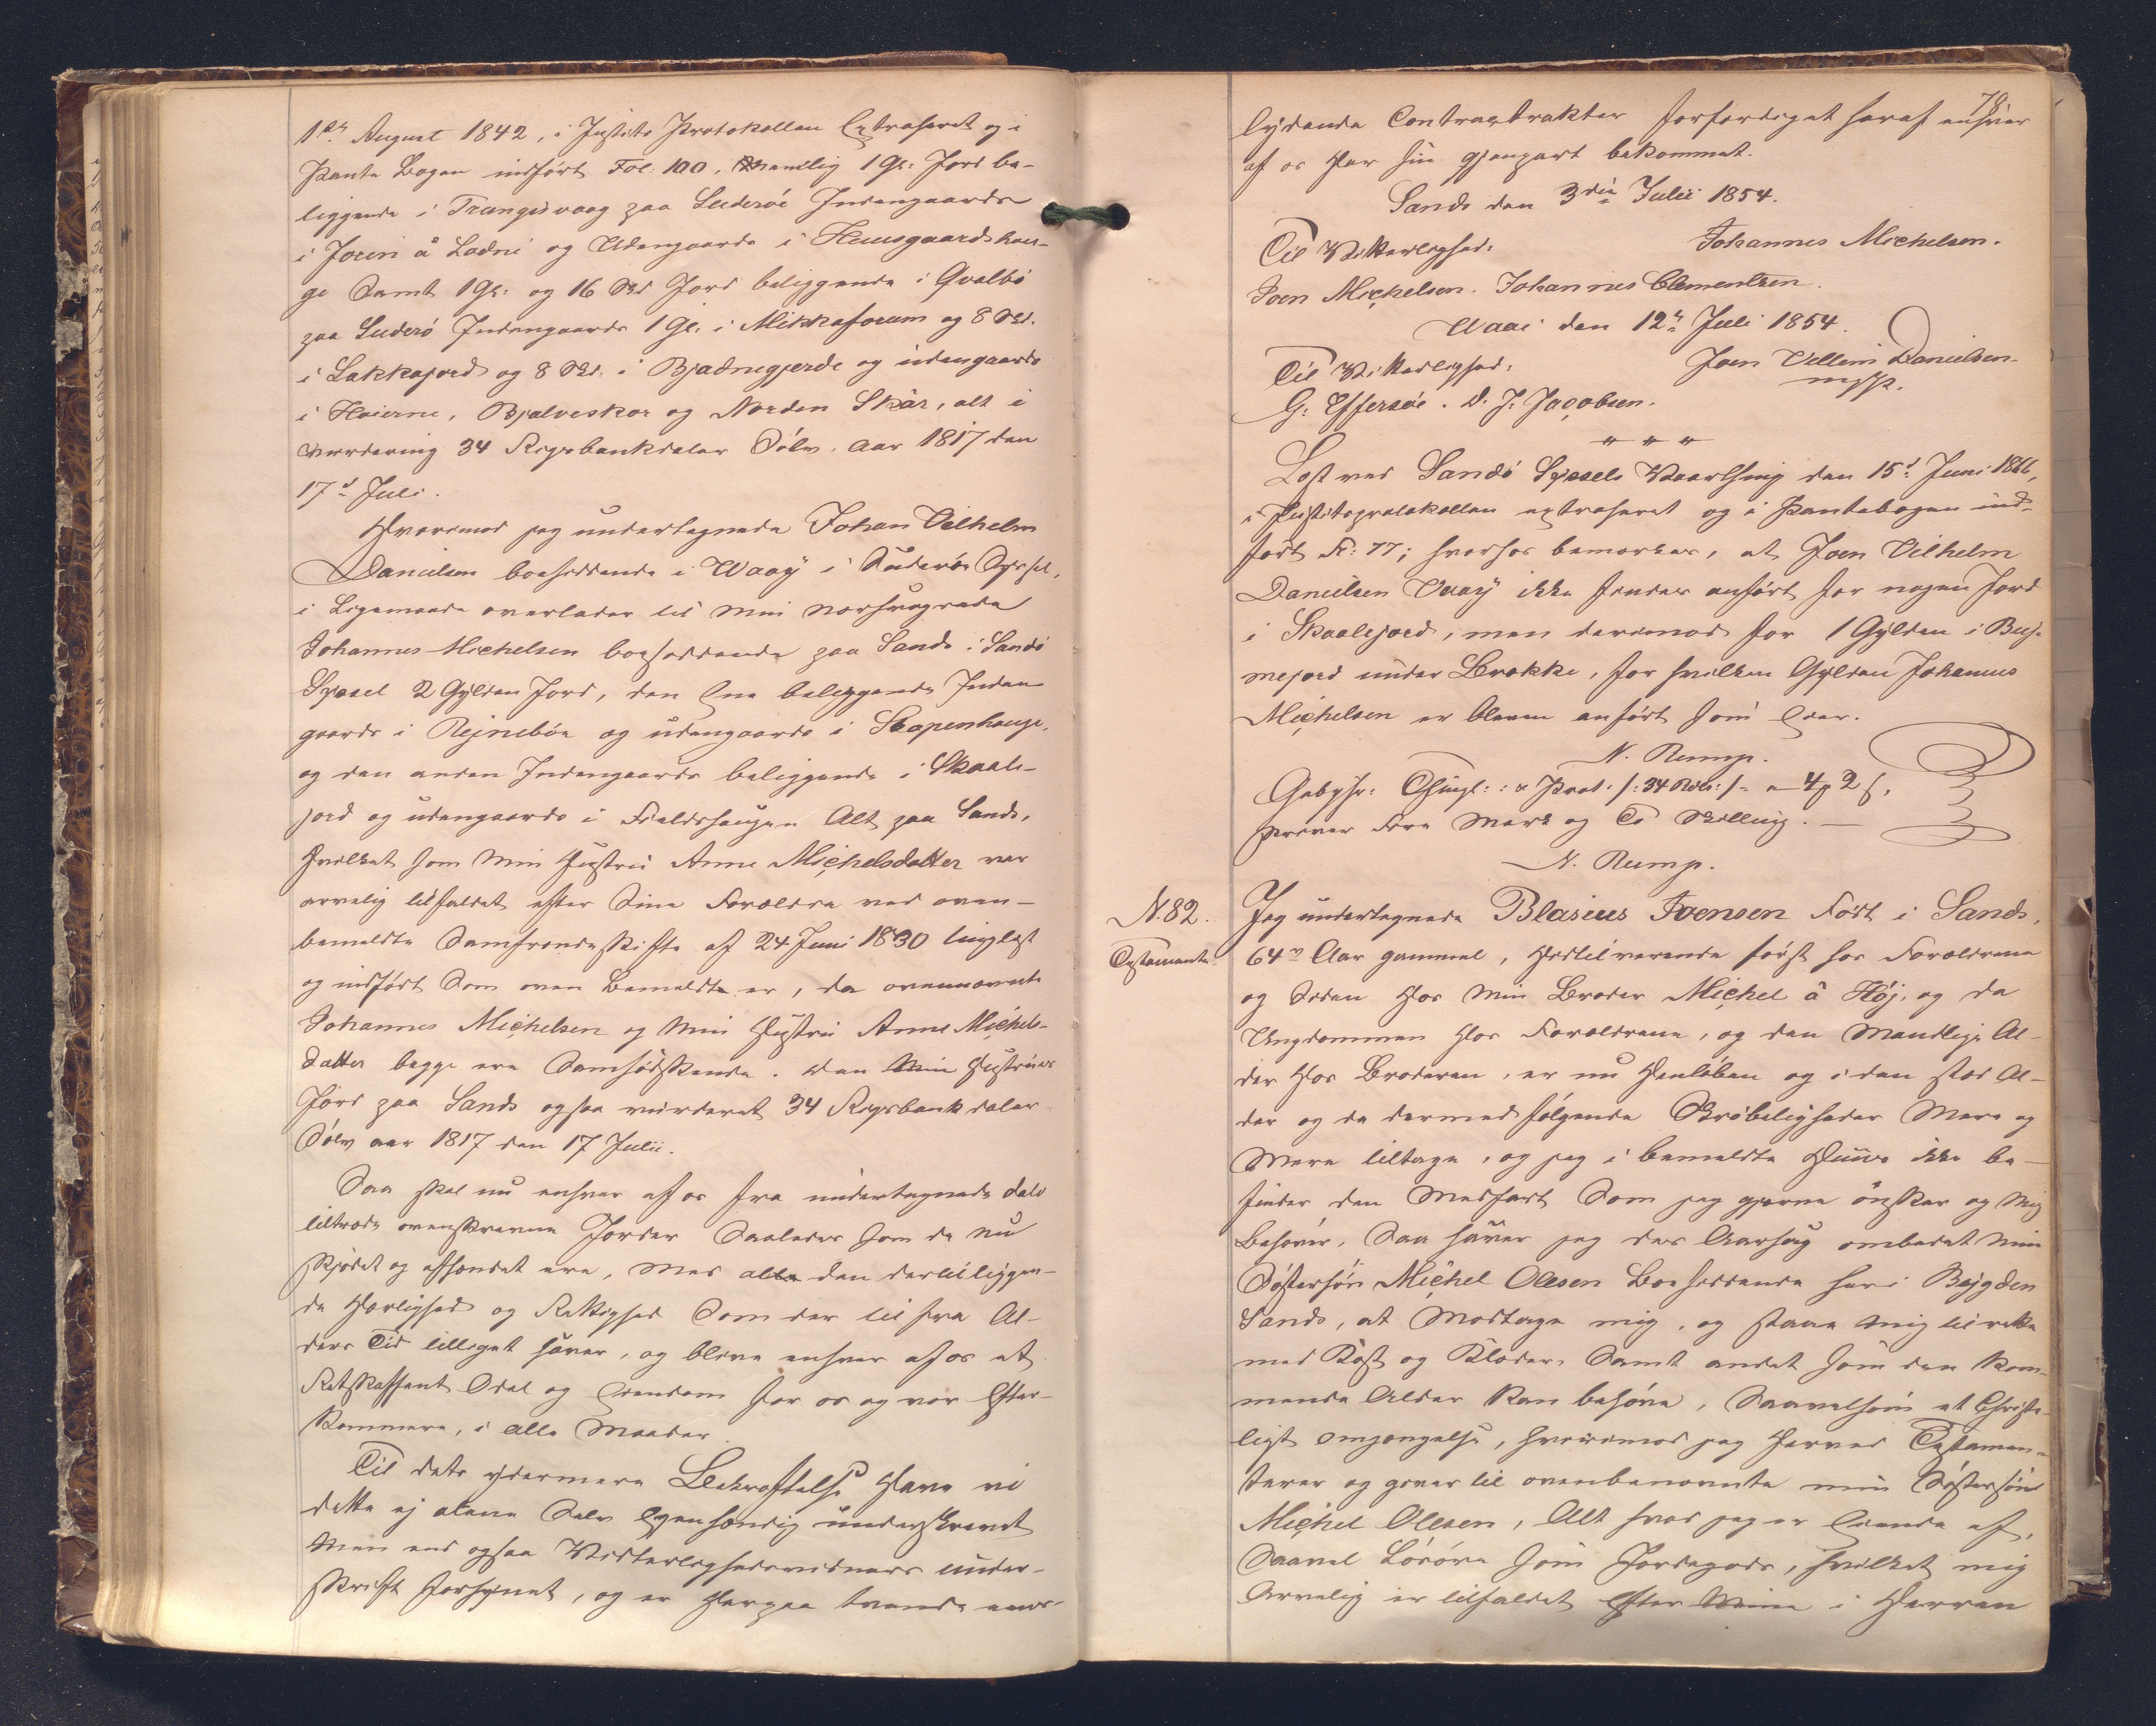 1ste August 1842, i Justits Protokollen Extraheret og i
Pante Bogen indført Fol: 100, nemlig 1 Gl: Jord be-
liggende i Trangisvaag paa Suderöe Indengaards
i Jorin å Ladni og Udengaards i Heuusgaardshau-
ge Samt 1 Gl: og 16 Skd Jord beliggende i Qvalbö
paa Suderö Indengaards 1 Gl. i Mikkaforum og 8 Skd.
i Lakkajord og 8 Skd. i Bjadnegjerde og udengaards
i Haierne, Bjalveskor og Norden Skår, alt i
vurdering 34 Rigsbankdaler Sölv. Aar 1817 den
17d Juli.
Hvorimod jeg undertegnede Johan Vilhelm
Danielsen boesiddende i Waay i Suderöe Syssel,
i Ligemaade overlader til min
Johannes Michelsen boesiddende paa Sands i Sandö
Syssel 2 Gylden Jord, den Ene beliggende Inden-
gaards i Rejneböe og udengaards i Skapenhauge,
og den anden Indengaards beliggende i Skaale-
jord og udengaards i Fieldshaugen Alt paa Sands,
Hvilket som min Hustrue Anne Michelsdatter var
arvelig tilfaldet efter Sine Forældre ved oven-
bemeldte Samfrændeskifte af 24 Juni 1830 tinglæst
og indført Som oven Bemeldte er, da ovennævnte
Johannes Michelsen og min Hustrue Anne Michels-
datter begge ere Samsödskende. Den Min Hustrues
Jord paa Sands ogsaa vurderet 34 Rigsbankdaler
Sölv aar 1817 den 17 Julii.
Saa skal nu enhver af os fra undertegnede dato
tiltræde ovenskrevne Jorder Saaledes som de nu
skjødet og afhændet ere, Med alle den dertilliggen-
de Herlighed og Rettighed Som der til fra Al-
ders Tid tilligget haver, og blive enhver af os et
Retskaffent Odel og Eiendom for os og vor Efter-
kommere, i alle Maader.
Til dets ydermere Bekræftelse Have vi
dette ej alene Selv Egenhændig underskrevet
Men end ogsaa Vitterlighedsvidners under-
skrift forsynet, og er Herpaa tvende eens-
78
lydende Contracktrakter forfærdiget hvoraf enhver
af os Har sin gjenpart bekommet.
Sands den 3die Julii 1854.
Til Vitterlighed: Johannes Michelsen.
Joen Michelsen. Johannes Clementsen.
Waai den 12te Juli 1854.
Til Vitterlighed: Joen Villem Danielsen
G: Effersöe. D. J. Jacobsen. mpp.
" " "
Læst ved Sandö Syssels Vaarthing den 15d Juni 1866,
i Justitsprotokollen extraheret og i Pantebogen ind-
ført Fl: 77; hvorhos bemærkes, at Joen Vilhelm
Danielsen Vaay ikke findes anført for nogen Jord
i Skaalejord, men derimod for 1 Gylden i Buj-
mejord under Brekke, for hvilken Gylden Johannes
Michelsen er bleven anført som Eier.
N. Remp.
Gebyhr: Thingl: & Prot. /: 34 Rdlr: / = 4 2 s,
skriver Fire Mark og To Skilling. —
N. Remp.
N. 82. Jeg undertegnede Blasius Joensen Født i Sands,
Testamente. 64 Aar gammel, Hidtil værende først hos Forældrene
og Siden Hos min Broder Michel å Höj. og da
Ungdommen Hos Forældrene, og den Mandlige Al-
der Hos Broderen, er nu Henløben og i den stød Al-
der og de dermed følgende Skröbeligheder Mere og
Mere tiltage, og jeg i bemeldte Huus ikke be-
finder den Medfart Som jeg gjerne önsker og Mig
behøver, Saa haver jeg der Aarsag ombedet min
Søstersön Michel Olesen Boesiddende her i Bøjgden
Sands, at Modtage mig, og staae mig til rette
med Kost og Klæder, Samt andet som den kom-
mende Alder kan behøve, Saavelsom et Christe-
ligt omgængelse, hvorimod jeg Herved Testamen-
terer og giver til ovenbenævnte min Søstersön
Michel Olesen, Alt hvad jeg er Eiende af,
Saavel Lösöre som Jordegods, hvilket mig
Arvelig er tilfaldet Efter Mine i Herren